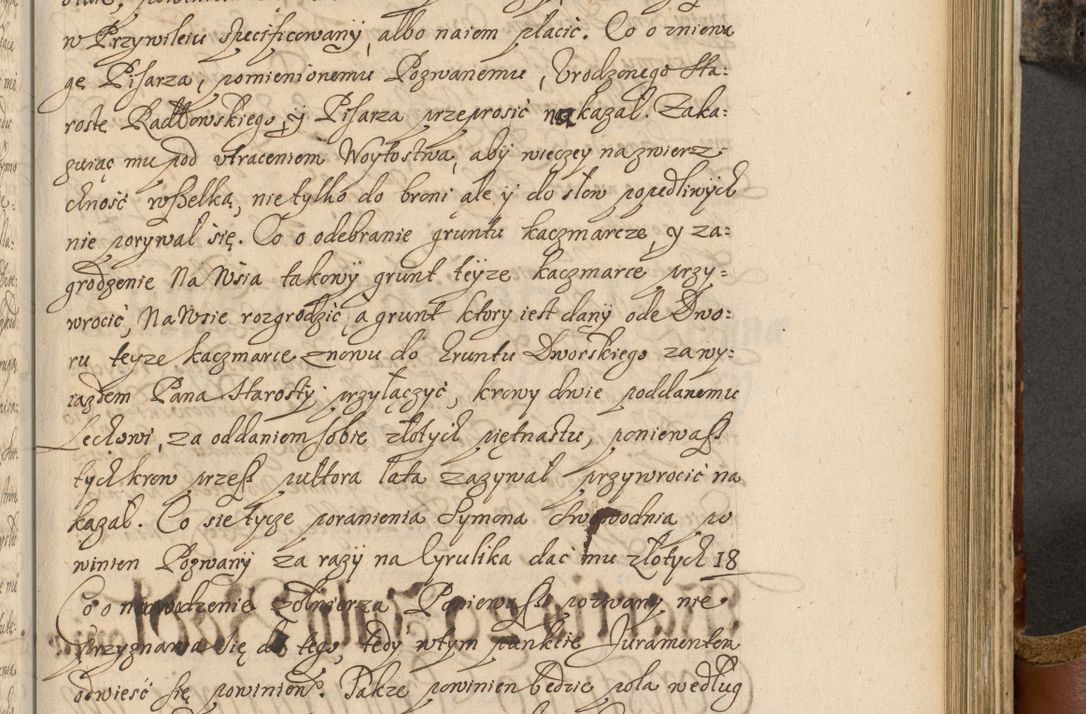 w Przywileiu specificowany, albo naiem płacić. Co o zniewa
gę Pisarza, pomienionemu Pozwanemu, Urodzonego Sta:
rostę Radłowskiego, y Pisarza przeprosić nakazał. Zaka:
zuiąc mu pod vtraceniem Woytostwa, aby więcey na zwierz:
chność wszelką, nie tylko do broni ale y do słow popędliwych
nie porywał się. Co o odebranie gruntu kaczmarcze, y za:
grodzenie Nawsia takowy grunt teyze kaczmarce przy:
wrocić, Nawsie rozgrodzić, a grunt ktory iest dany ode Dwo:
ru teyze kaczmarce znowu do Gruntu Dworskiego za wy:
iazdem Pana Starosty, przyłączyć, krowy dwie poddanemu
Lechowi, za oddaniem sobie złotych piętnastu, poniewasz
tych krow przesz pułtora lata zazywał przywrocić na
kazał. Co się tycze poranienia Symona po
winien Pozwany za razy na Cyrulika dać mu złotych 18
Co o nawodzenie zołnierza Poniewasz pozwany nie
przyznawa się do tego, tedy w tym punkcie Juramentem
odwieść się powinien. Takze powinien będzie pola według